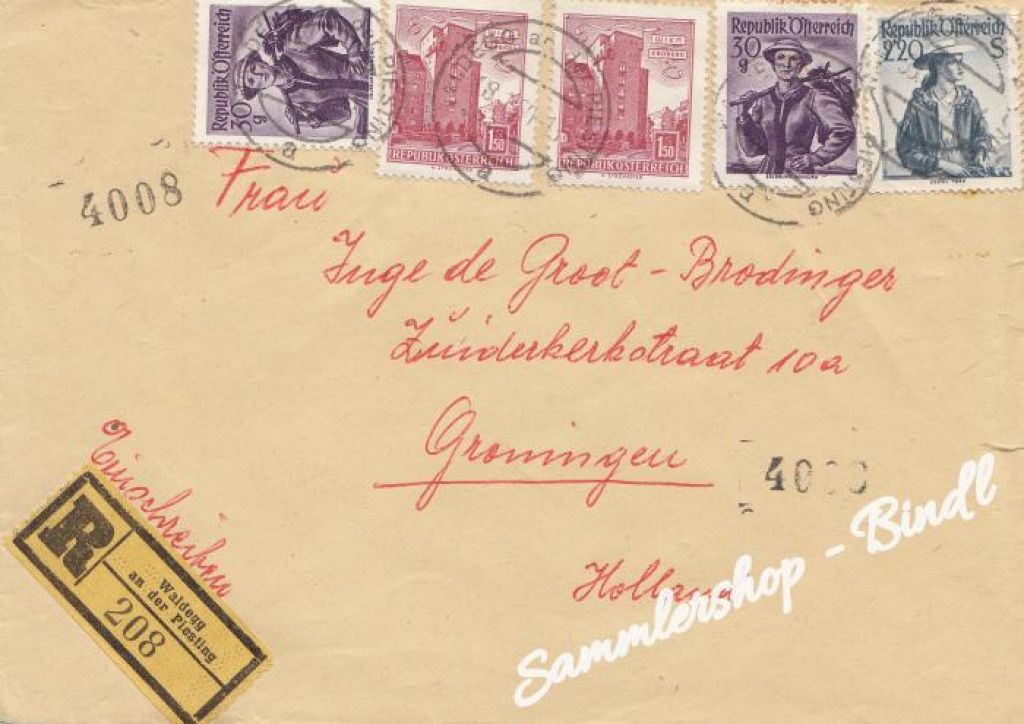 Republik Österreich
30 g
REPUBLIK ÖSTERREICH
1.50
WIEN
REPUBLIK ÖSTERREICH
1.50
WIEN
Republik Österreich
30 g
Republik Österreich
2'20 S
PIESTING
4008
Frau
Inge de Groot - Brodinger
Zuiderkerkstraat 10a
Groningen
4008
Holland
Einschreiben
R
Waldegg
an der Piesting
208
Sammlershop - Bindl